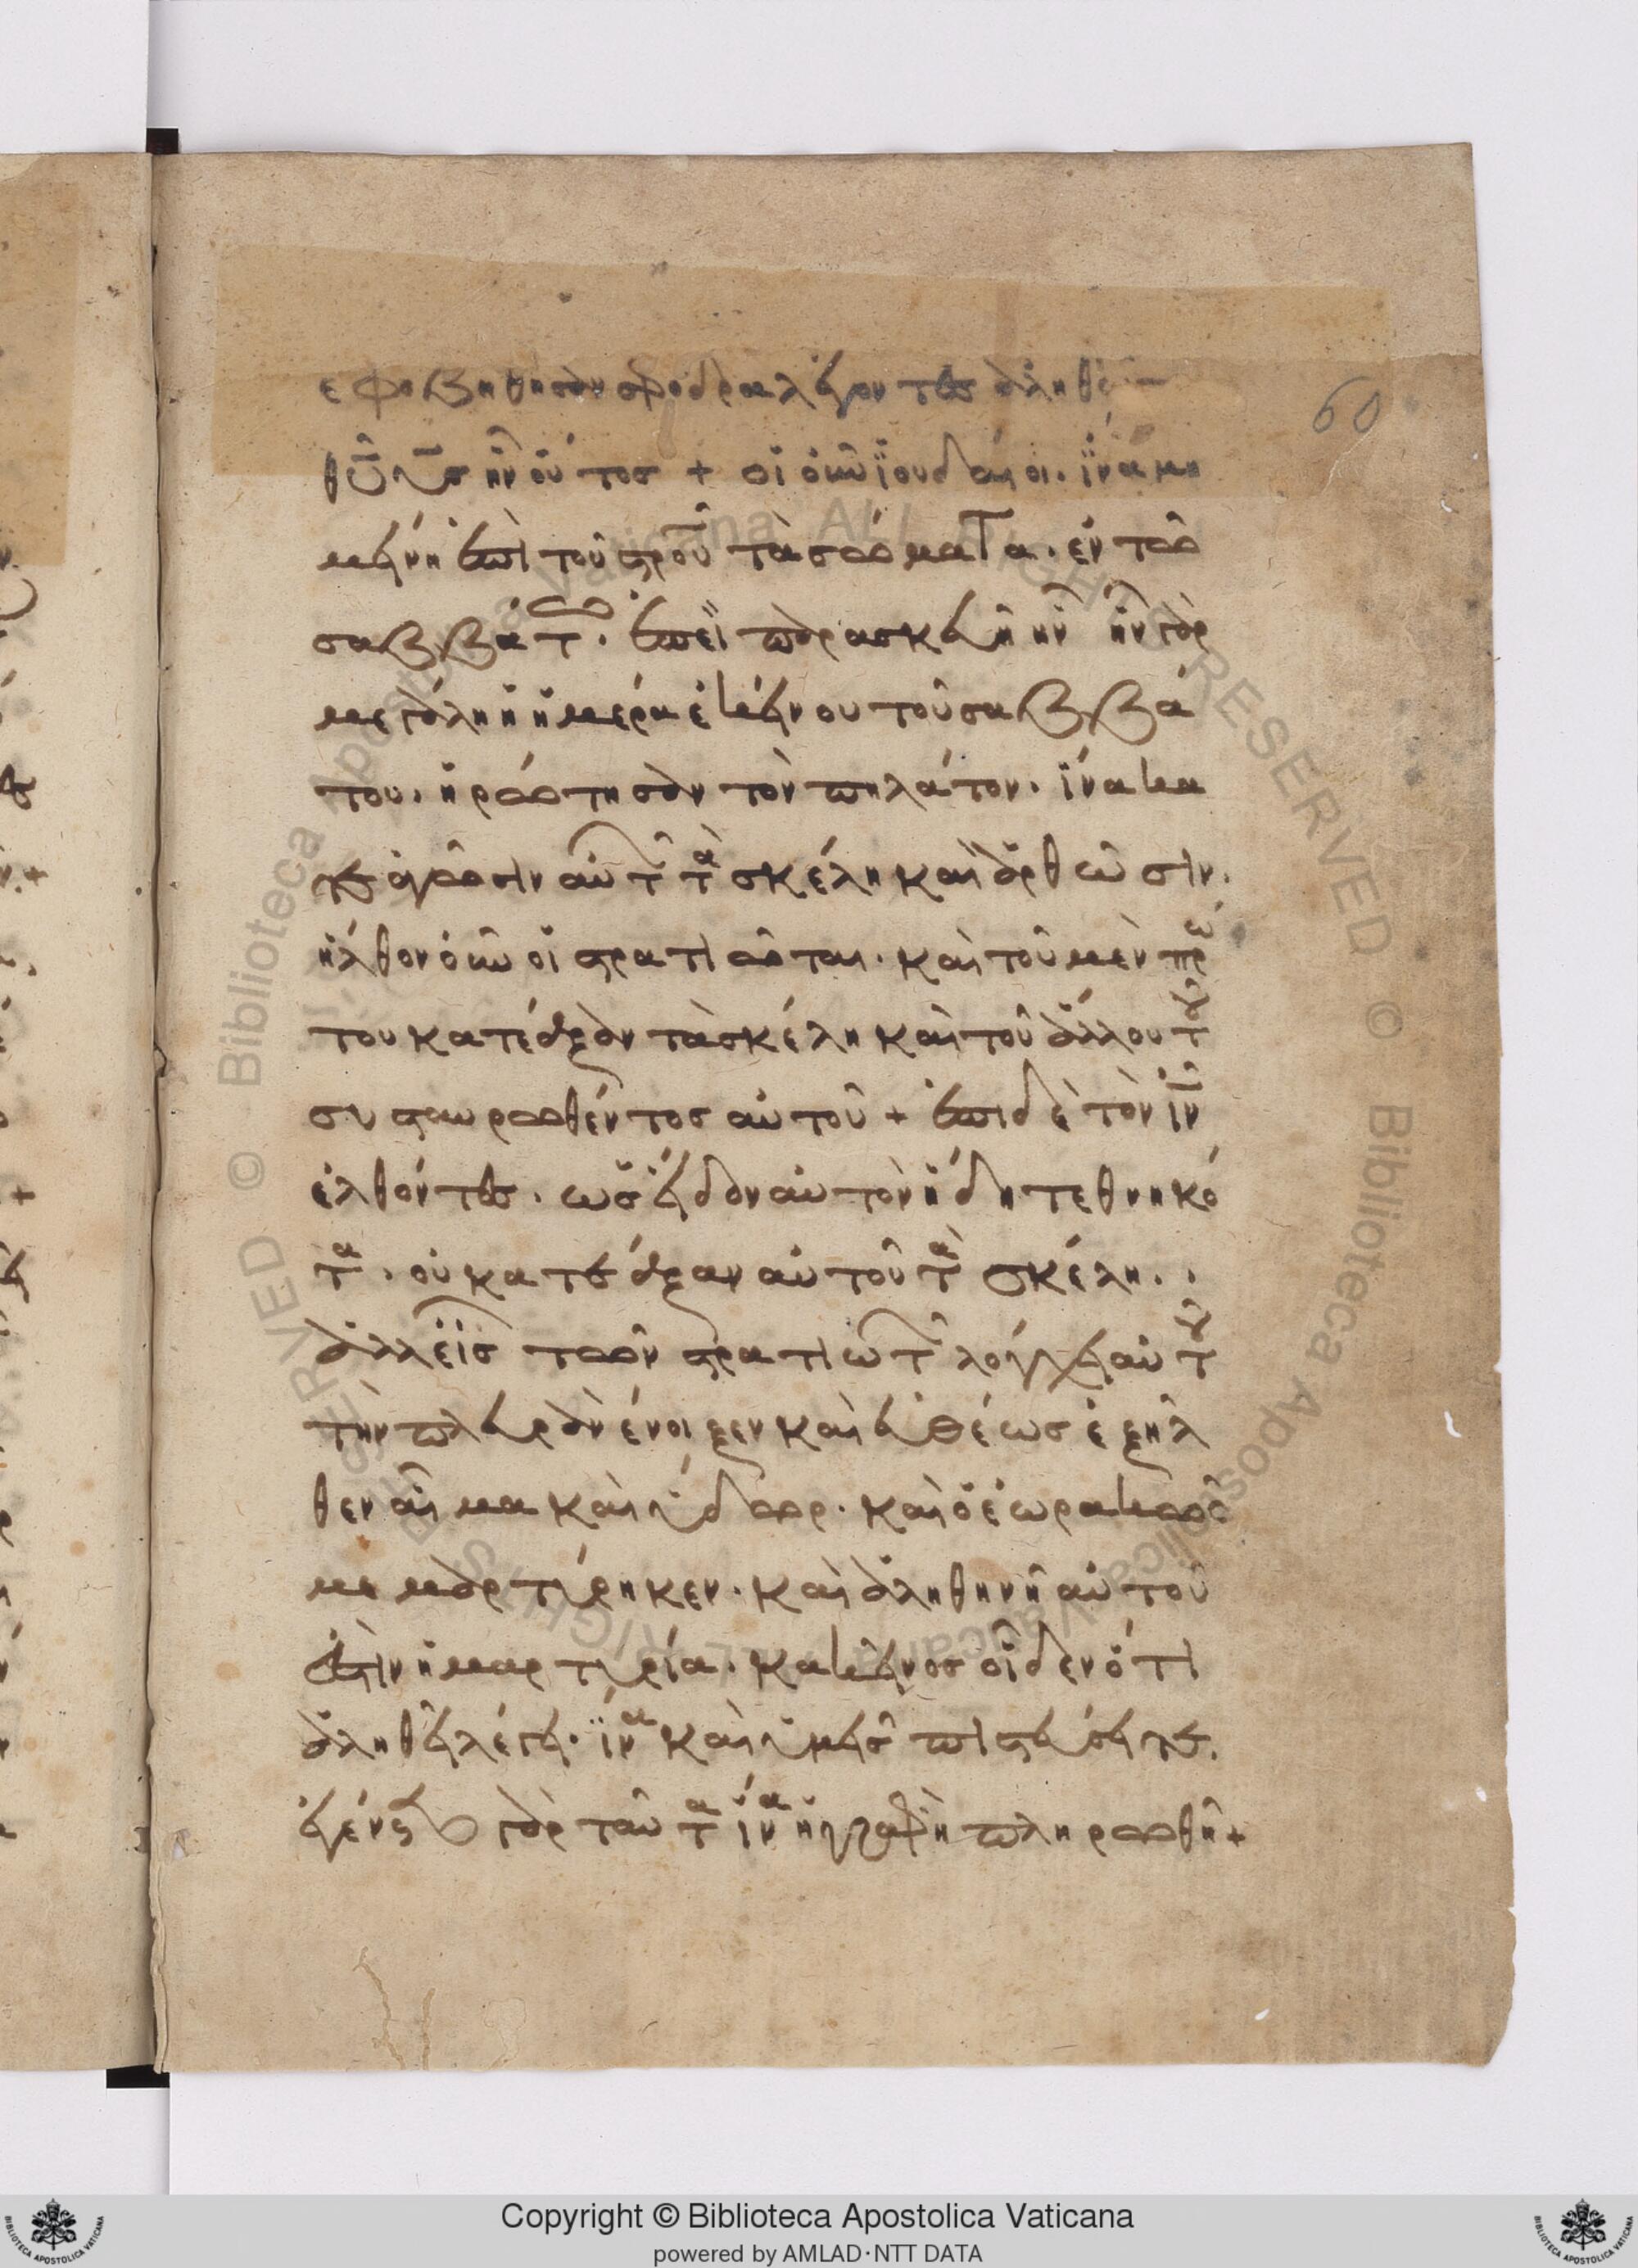 εφοβήθησαν σφόδρα λέγοντες ἀληθῶ
θῦ υς ἦν οὗτος + οἱ οὖν ἰουδαίοι. ἵνα μη
μείνη ἐπὶ τοῦ σρου τὰ σώματα. ἐν τῶ
σαββάτω. ἐπεὶ παρασκευῆ ἦν ἦν γὰρ
μεγάλη ἡ ἡμέρα ἐκείνου τοῦ σαββά
του. ἠρώτησαν τὸν πηλάτον. ἵνα κα
τεάγωσιν αὐτῶν τὰ σκέλη καὶ ἀρθῶσιν.
ἦλθον οὖν οἱ στρατιῶται. καὶ τοῦ μὲν πρώ
του κατέαξαν τὰ σκέλη καὶ τοῦ ἄλλου τοῦ
συσταυρωθέντος αὐτοῦ + ἐπὶ δὲ τὸν ἰν
ἐλθόντες. ὡς εἶδον αὐτὸν ἤδη τεθνηκό
τα. οὐ κατέαξαν αὐτοῦ τὰ σκέλη..
ἀλλεἷς τῶν στρατιωτῶν λόγχη αὐτοῦ
τὴν πλευρὰν ἔνοιξεν καὶ εὐθέως ἐξῆλ
θεν αἷμα καὶ ὕδωρ. καὶ ὁ ἑωρακὼς
μεμαρτύρηκεν. καὶ ἀληθινὴ αὐτοῦ
ἐστὶν ἡ μαρτυρία. κακεῖνος οἶδεν ὅτι
ἀληθῆ λέγει. ἵνα καὶ ὑμεῖς πιστεύσητε.
ἐγένετο γὰρ ταῦτα ἵνα ἡ γραφὴ πληρωθῆ +
60
© Biblioteca Apostolica Vaticana ALL RIGHTS RESERVED
Copyright © Biblioteca Apostolica Vaticana
powered by AMLAD·NTT DATA
BIBLIOTECA APOSTOLICA VATICANA
BIBLIOTECA APOSTOLICA VATICANA